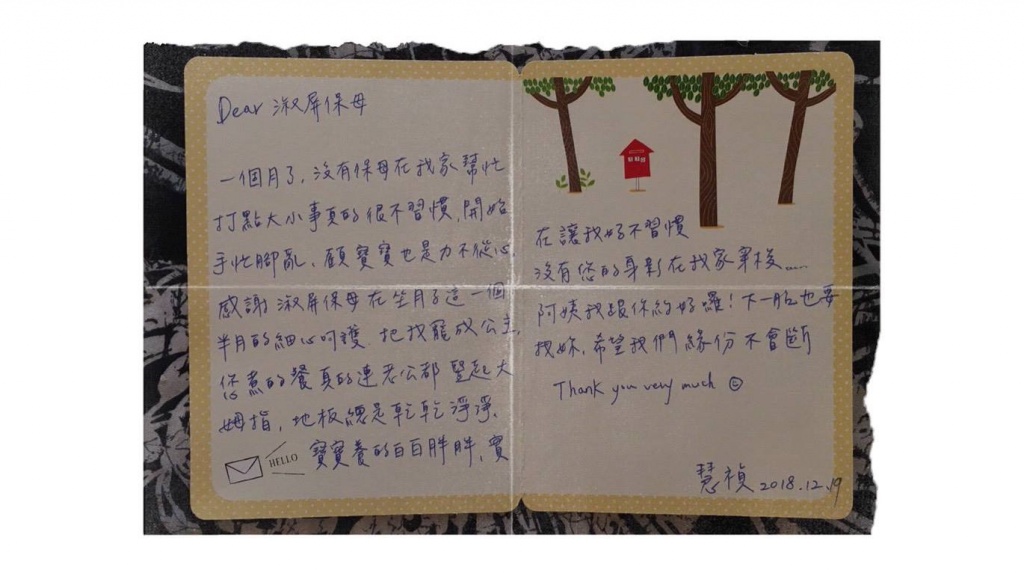 Dear 淑屏保母
一個月了，沒有保母在我家幫忙
打點大小事真的很不習慣，開始
手忙腳亂、顧寶寶也是力不從心，
感謝淑屏保母在坐月子這一個
半月的細心呵護，把我寵成公主，
您煮的餐真的連老公都豎起大
姆指，地板總是乾乾淨淨、
HELLO
寶寶養的白白胖胖，實
在讓我好不習慣
沒有您的身影在我家穿梭……
阿姨我跟你約好囉！下一胎也要
找妳，希望我們緣份不會斷
Thank you very much ☺
慧禎 2018.12.19